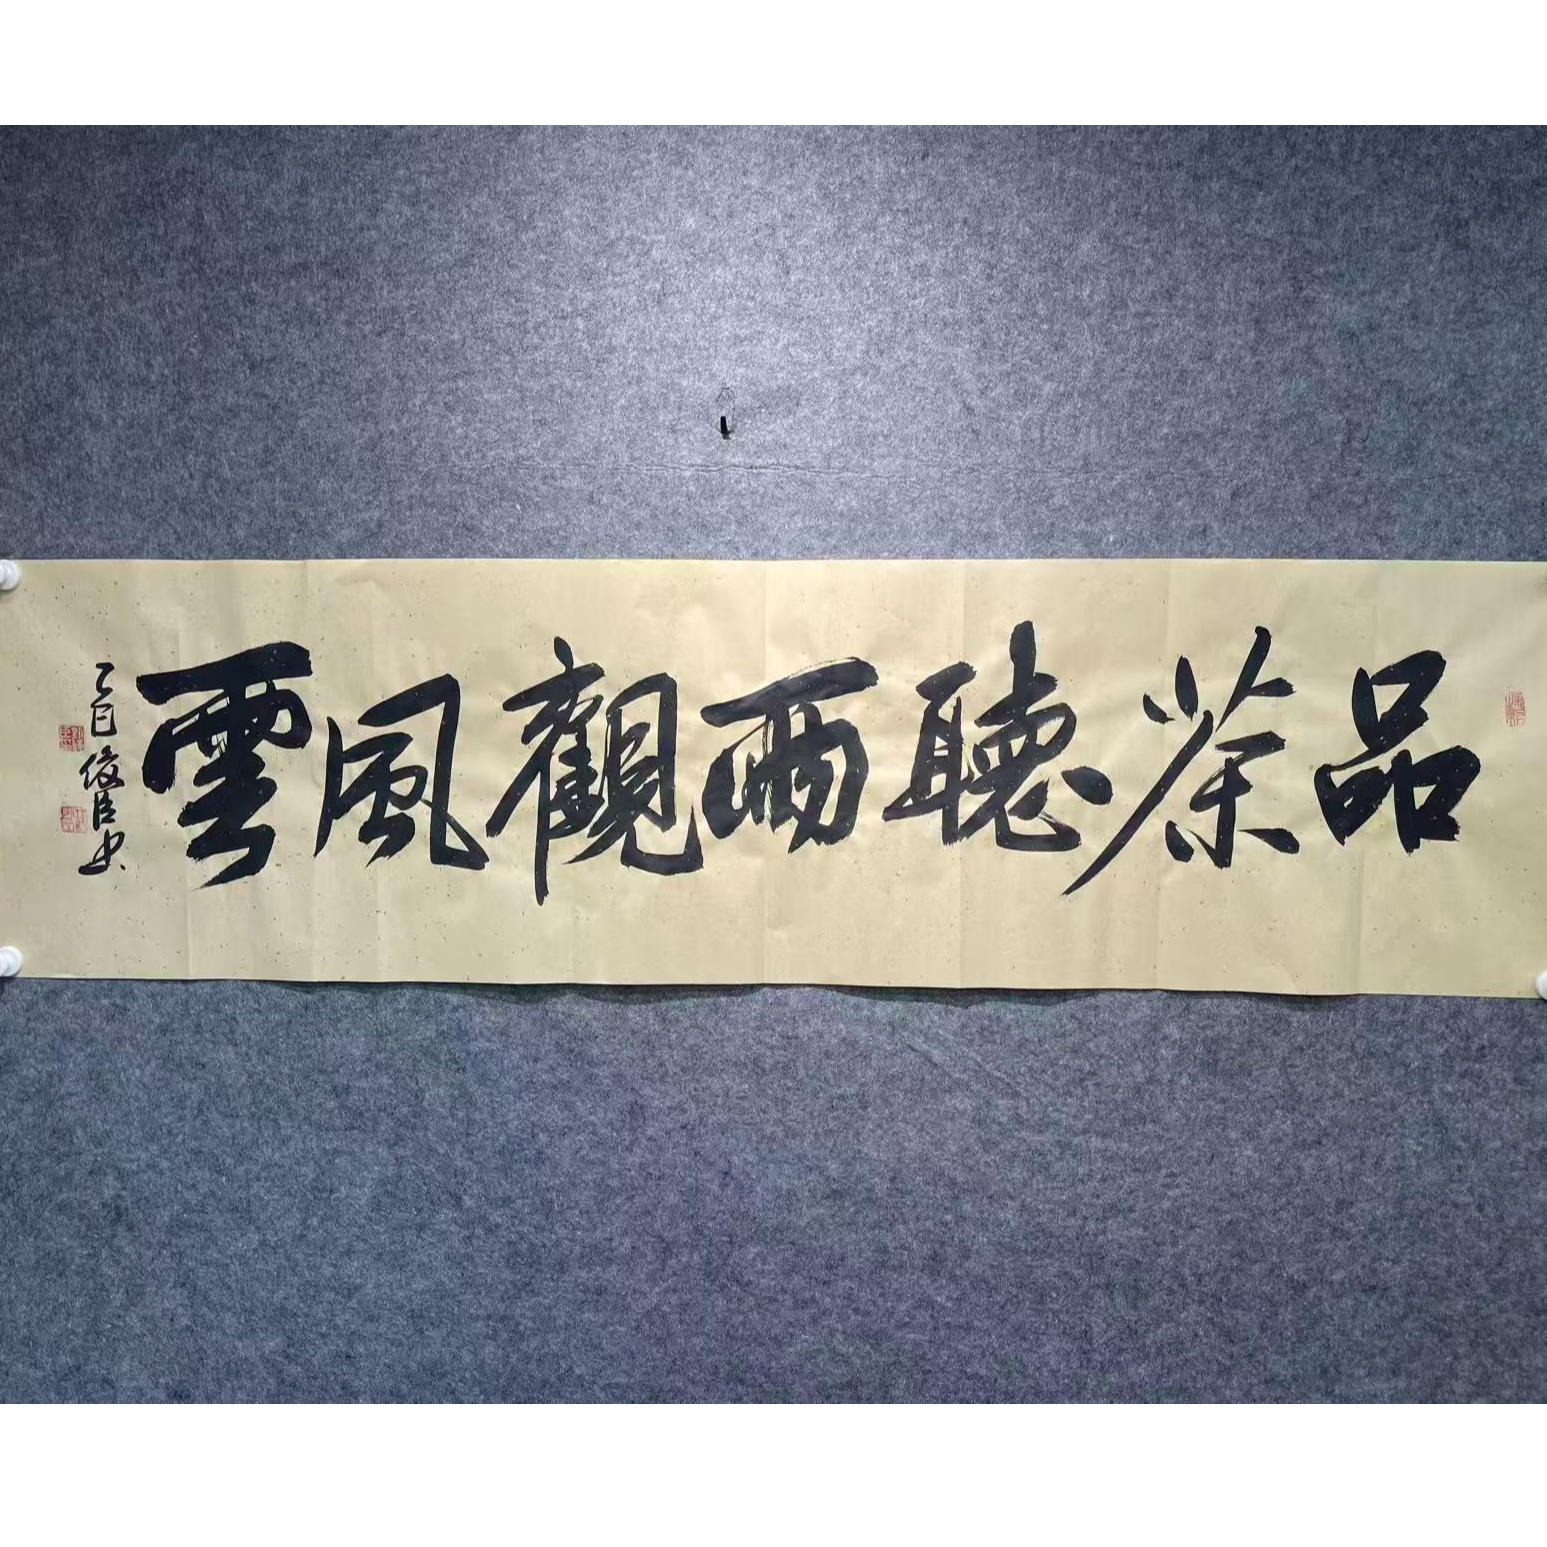 品茶聽雨觀風雲
乙巳俊臣书